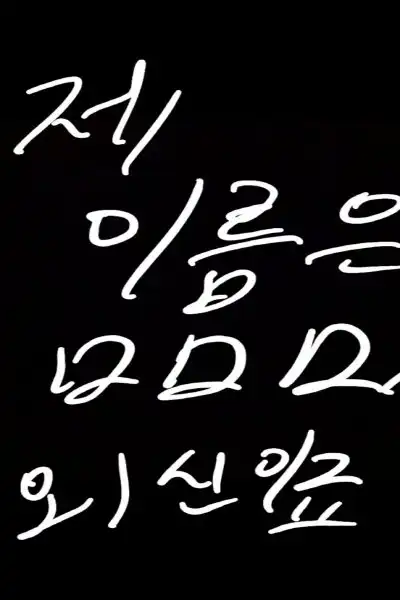 제
이름은
ㅁㅁㅁ
외신